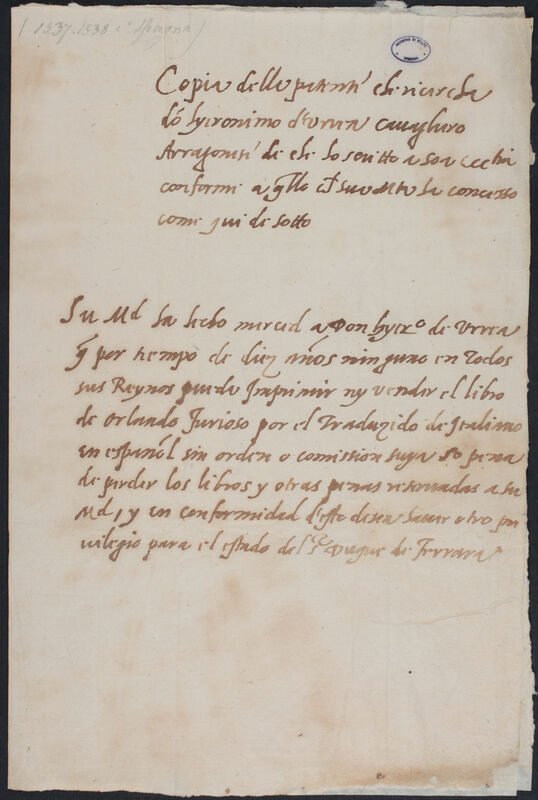 (1537-1538 cª Spagna)
ARCHIVIO DI STATO
MODENA
Copia della patenti che ricercha
dõ hyeronimo d'Urrea Cavagliero
Arragonesi de che lo scritto a soa Ecctia
conforme a qllo ch sua Mta ha concesso
come qui de sotto
Su Md ha hecho merced a Don hyerº de Urrea
q̃ por tiempo de diez años ninguno en Todos
sus Reynos pueda Imprimir ny vender el libro
de Orlando Furioso por el Traduzido de Italiano
en español sin orden o comission suya so pena
de perder los libros y otras penas reseruadas a su
Md, y en conformidad d'esto desea hauer otro pri
uilegio para el estado del Sr Duque de Ferrara